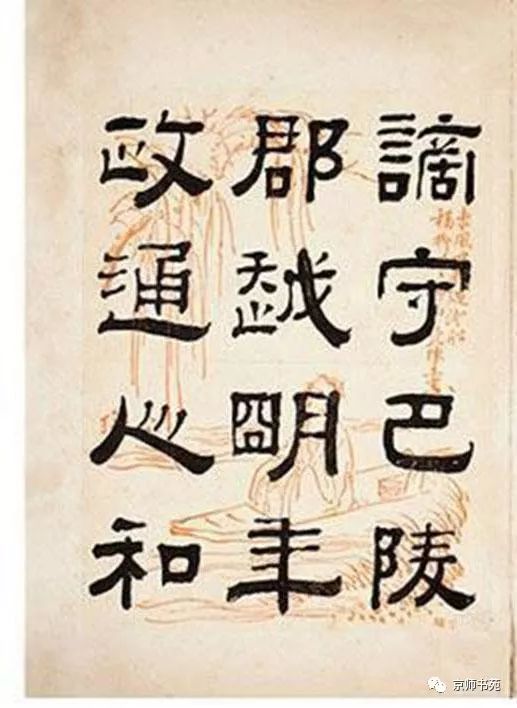 謫守巴陵
郡越明年
政通人和
京师书苑